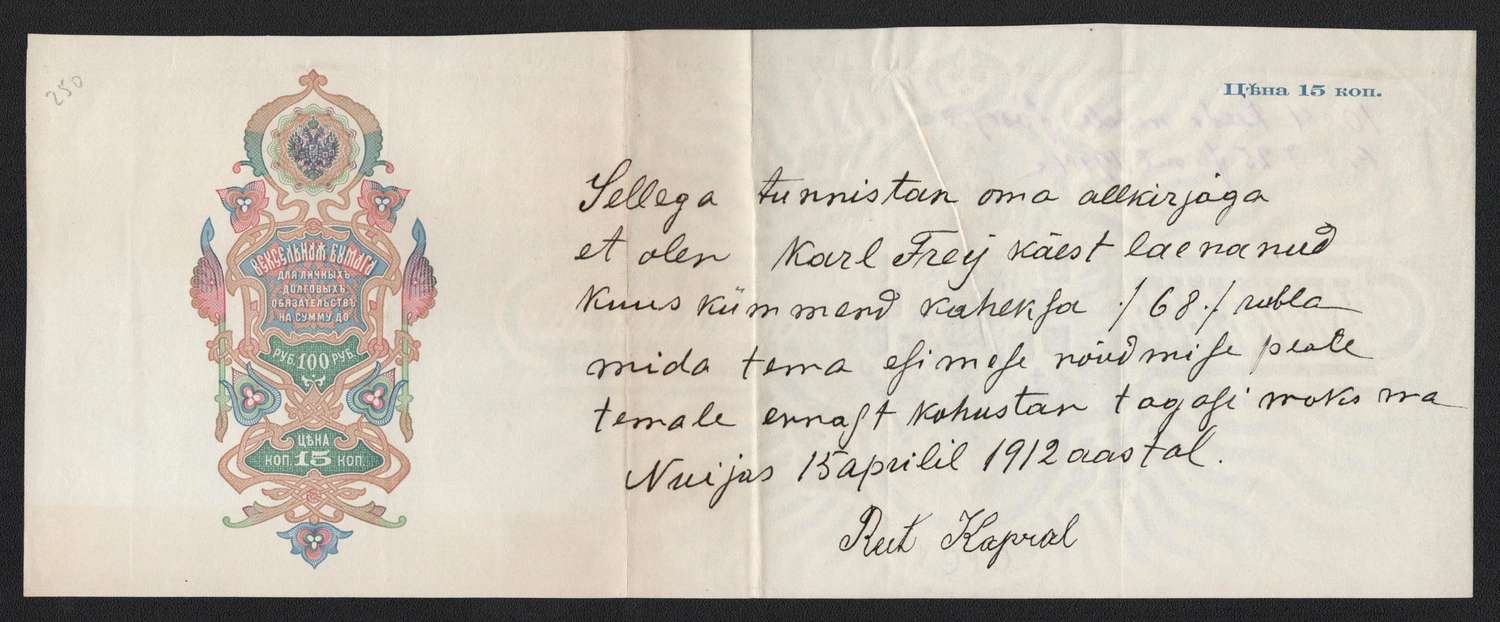 250
Цѣна 15 коп.
ВЕКСЕЛЬНАЯ БУМАГА
ДЛЯ ЛИЧНЫХЪ
ДОЛГОВЫХЪ
ОБЯЗАТЕЛЬСТВЪ
НА СУММУ ДО
РУБ. 100 РУБ.
ЦѢНА
КОП. 15 КОП.
Sellega tunnistan oma allkirjaga
et olen Karl Freij käest laenanud
Kuus kümmend kahekſa ./68./ rubla
mida tema eſimeſe nõudmiſe peale
temale ennaſt kohustan tagaſi maksma
Nuijas 15 aprilil 1912 aastal.
Rut Kapral